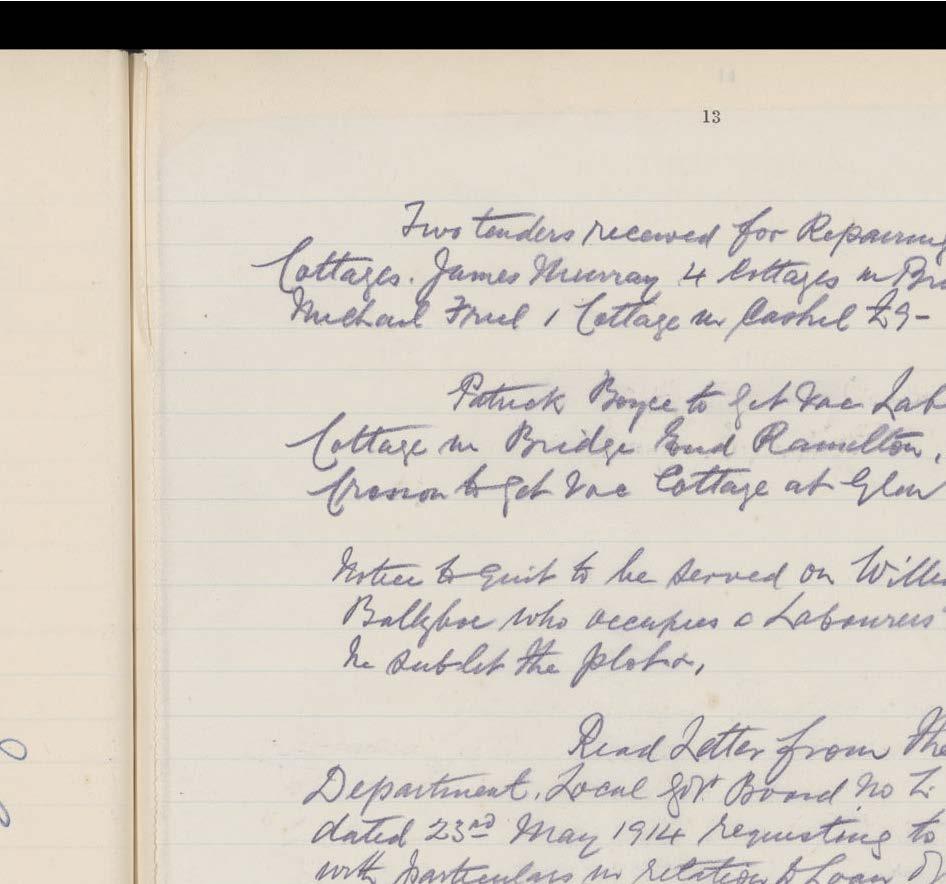 13
Two tenders received for Repairing
Cottages. James Murray 4 Cottages in Br
Michael Friel 1 Cottage in Cashel £9-
Patrick Boyce to get Vac Lab
Cottage in Bridge End Ramelton,
to get Vac Cottage at Glen
Notice to quit to be served on Willi
Ballyboe who occupies a Labourers
he sublet the plot
Read Letter from the
Department, Local Govt Board No L
dated 23rd May 1914 requesting to
with particulars in relation to Loan of